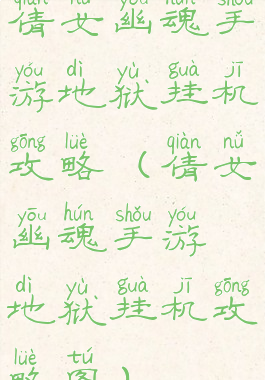 qiàn nǚ yōu hún shǒu
倩女幽魂手
yóu dì yù guà jī
游地狱挂机
gōng lüè qiàn nǚ
攻略（倩女
yōu hún shǒu yóu
幽魂手游
dì yù guà jī gōng
地狱挂机攻
lüè tú
略图）